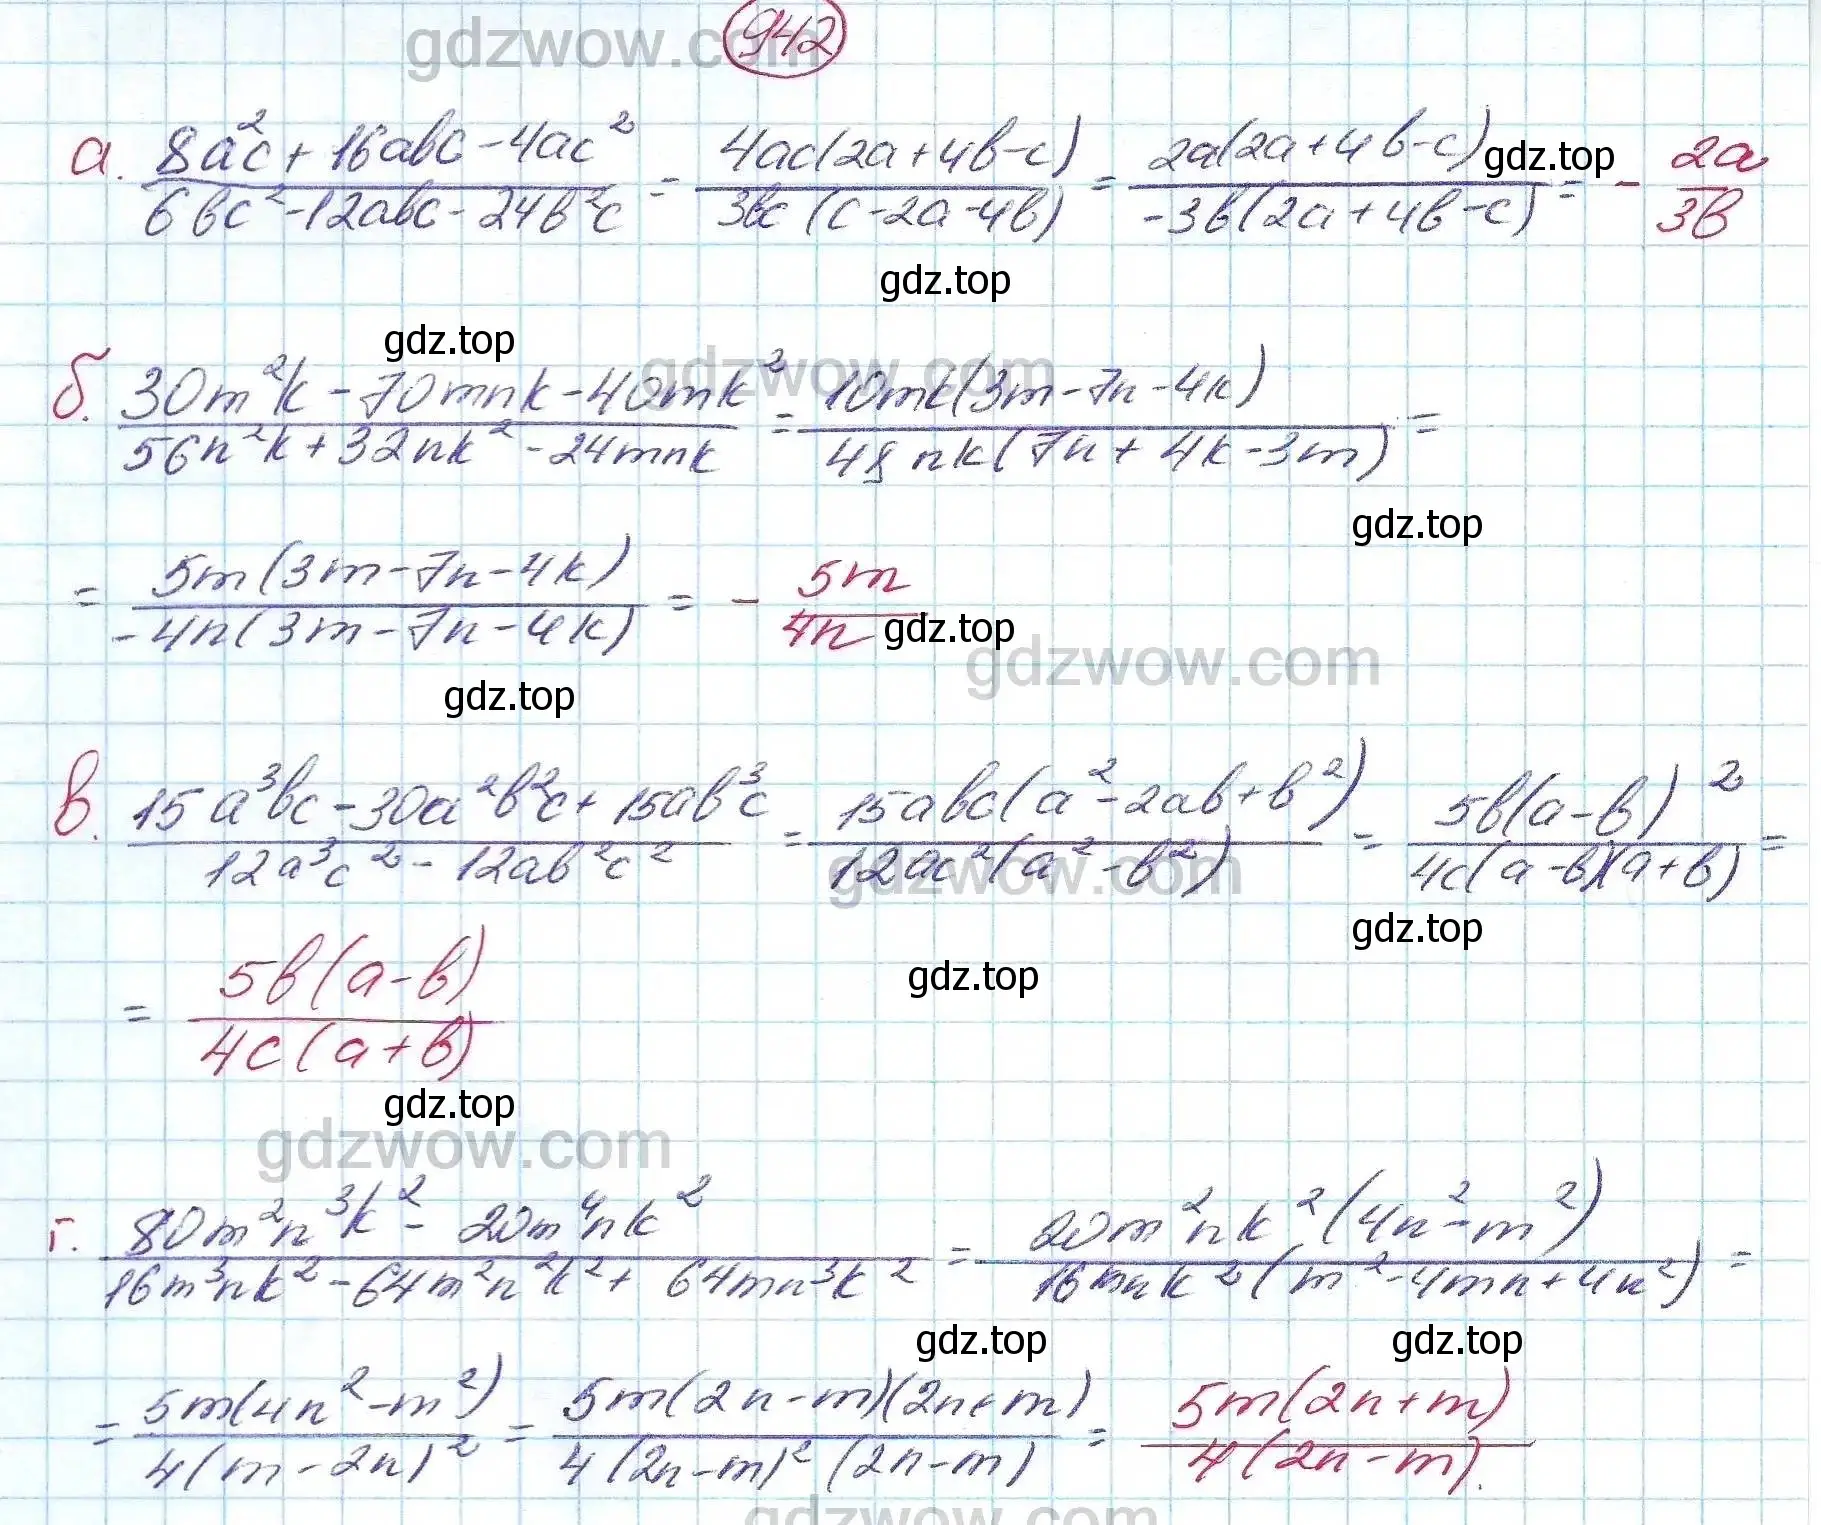 gdzwow.com
942
а. (8a²c + 16abc - 4ac²)/(6bc² - 12abc - 24b²c) = 4ac(2a + 4b - c)/3bc(c - 2a - 4b) = 2a(2a + 4b - c)/-3b(2a + 4b - c) = - 2a/3b
gdz.top
gdz.top
gdz.top
gdzwow.com
б. (30m²k - 70mnk - 40mk²)/(56n²k + 32nk² - 24mnk) = 10mk(3m - 7n - 4k)/48nk(7n + 4k - 3m) =
gdz.top
= 5m(3m - 7n - 4k)/-4n(3m - 7n - 4k) = - 5m/4n
gdz.top
gdzwow.com
gdz.top
в. (15a³bc - 30a²b²c + 15ab³c)/(12a³c² - 12ab²c²) = 15abc(a² - 2ab + b²)/12ac²(a² - b²) = 5b(a - b)²/4c(a - b)(a + b) =
gdzwow.com
gdz.top
= 5b(a - b)/4c(a + b)
gdz.top
gdz.top
gdzwow.com
г. (80m²n³k² - 20m⁴nk²)/(16m³nk² - 64m²n²k² + 64mn³k²) = 20m²nk²(4n² - m²)/16mnk²(m² - 4mn + 4n²) =
gdz.top
gdz.top
= 5m(4n² - m²)/4(m - 2n)² = 5m(2n - m)(2n + m)/4(2n - m)²(2n - m) = 5m(2n + m)/4(2n - m).
gdzwow.com